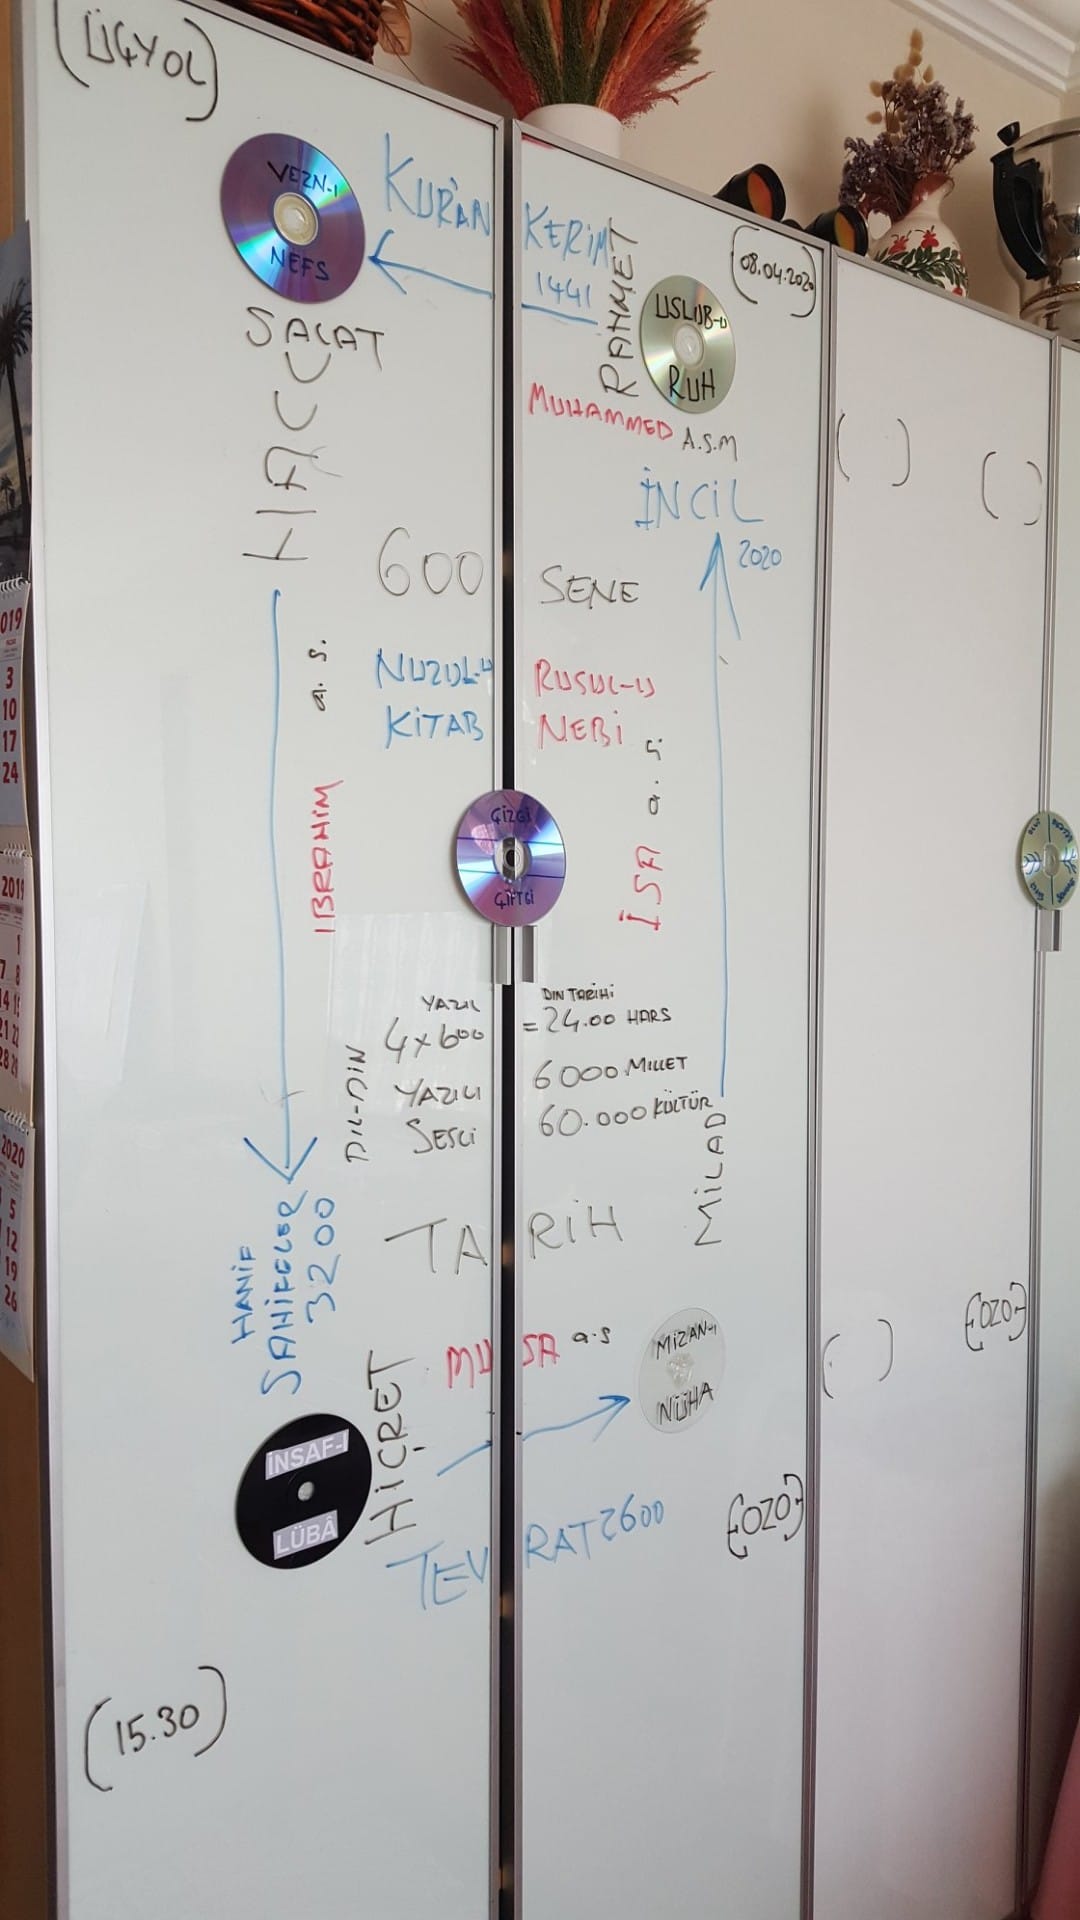 (ÜÇYOL)
VEZN-I
NEFS
KUR'AN KERİM
1441
RAHMET
(08.04.2020)
USLUB-U
RUH
SALAT
HAC
MUHAMMED A.S.M
İNCİL
2020
600 SENE
a.s.
NUZUL-U RUSUL-U
KİTAB NEBİ
IBRAHİM
İSA a.s
ÇİZGİ
ÇİFTGİ
YAZIL DIN TARİHİ
4x600 = 24.00 HARS
YAZILI 6000 MILLET
SESLİ 60.000 KÜLTÜR
DIL-DIN
MİLAD
TARİH
HANİF
SAHİFELER
3200
MUSA a.s
MİZAN-I
NÜHA
HİCRET
İNSAF-I
LÜBÂ
TEVRAT 2600
{OZO}
{OZO}
(15.30)
2019
3
10
17
24
2019
2020
5
12
19
26